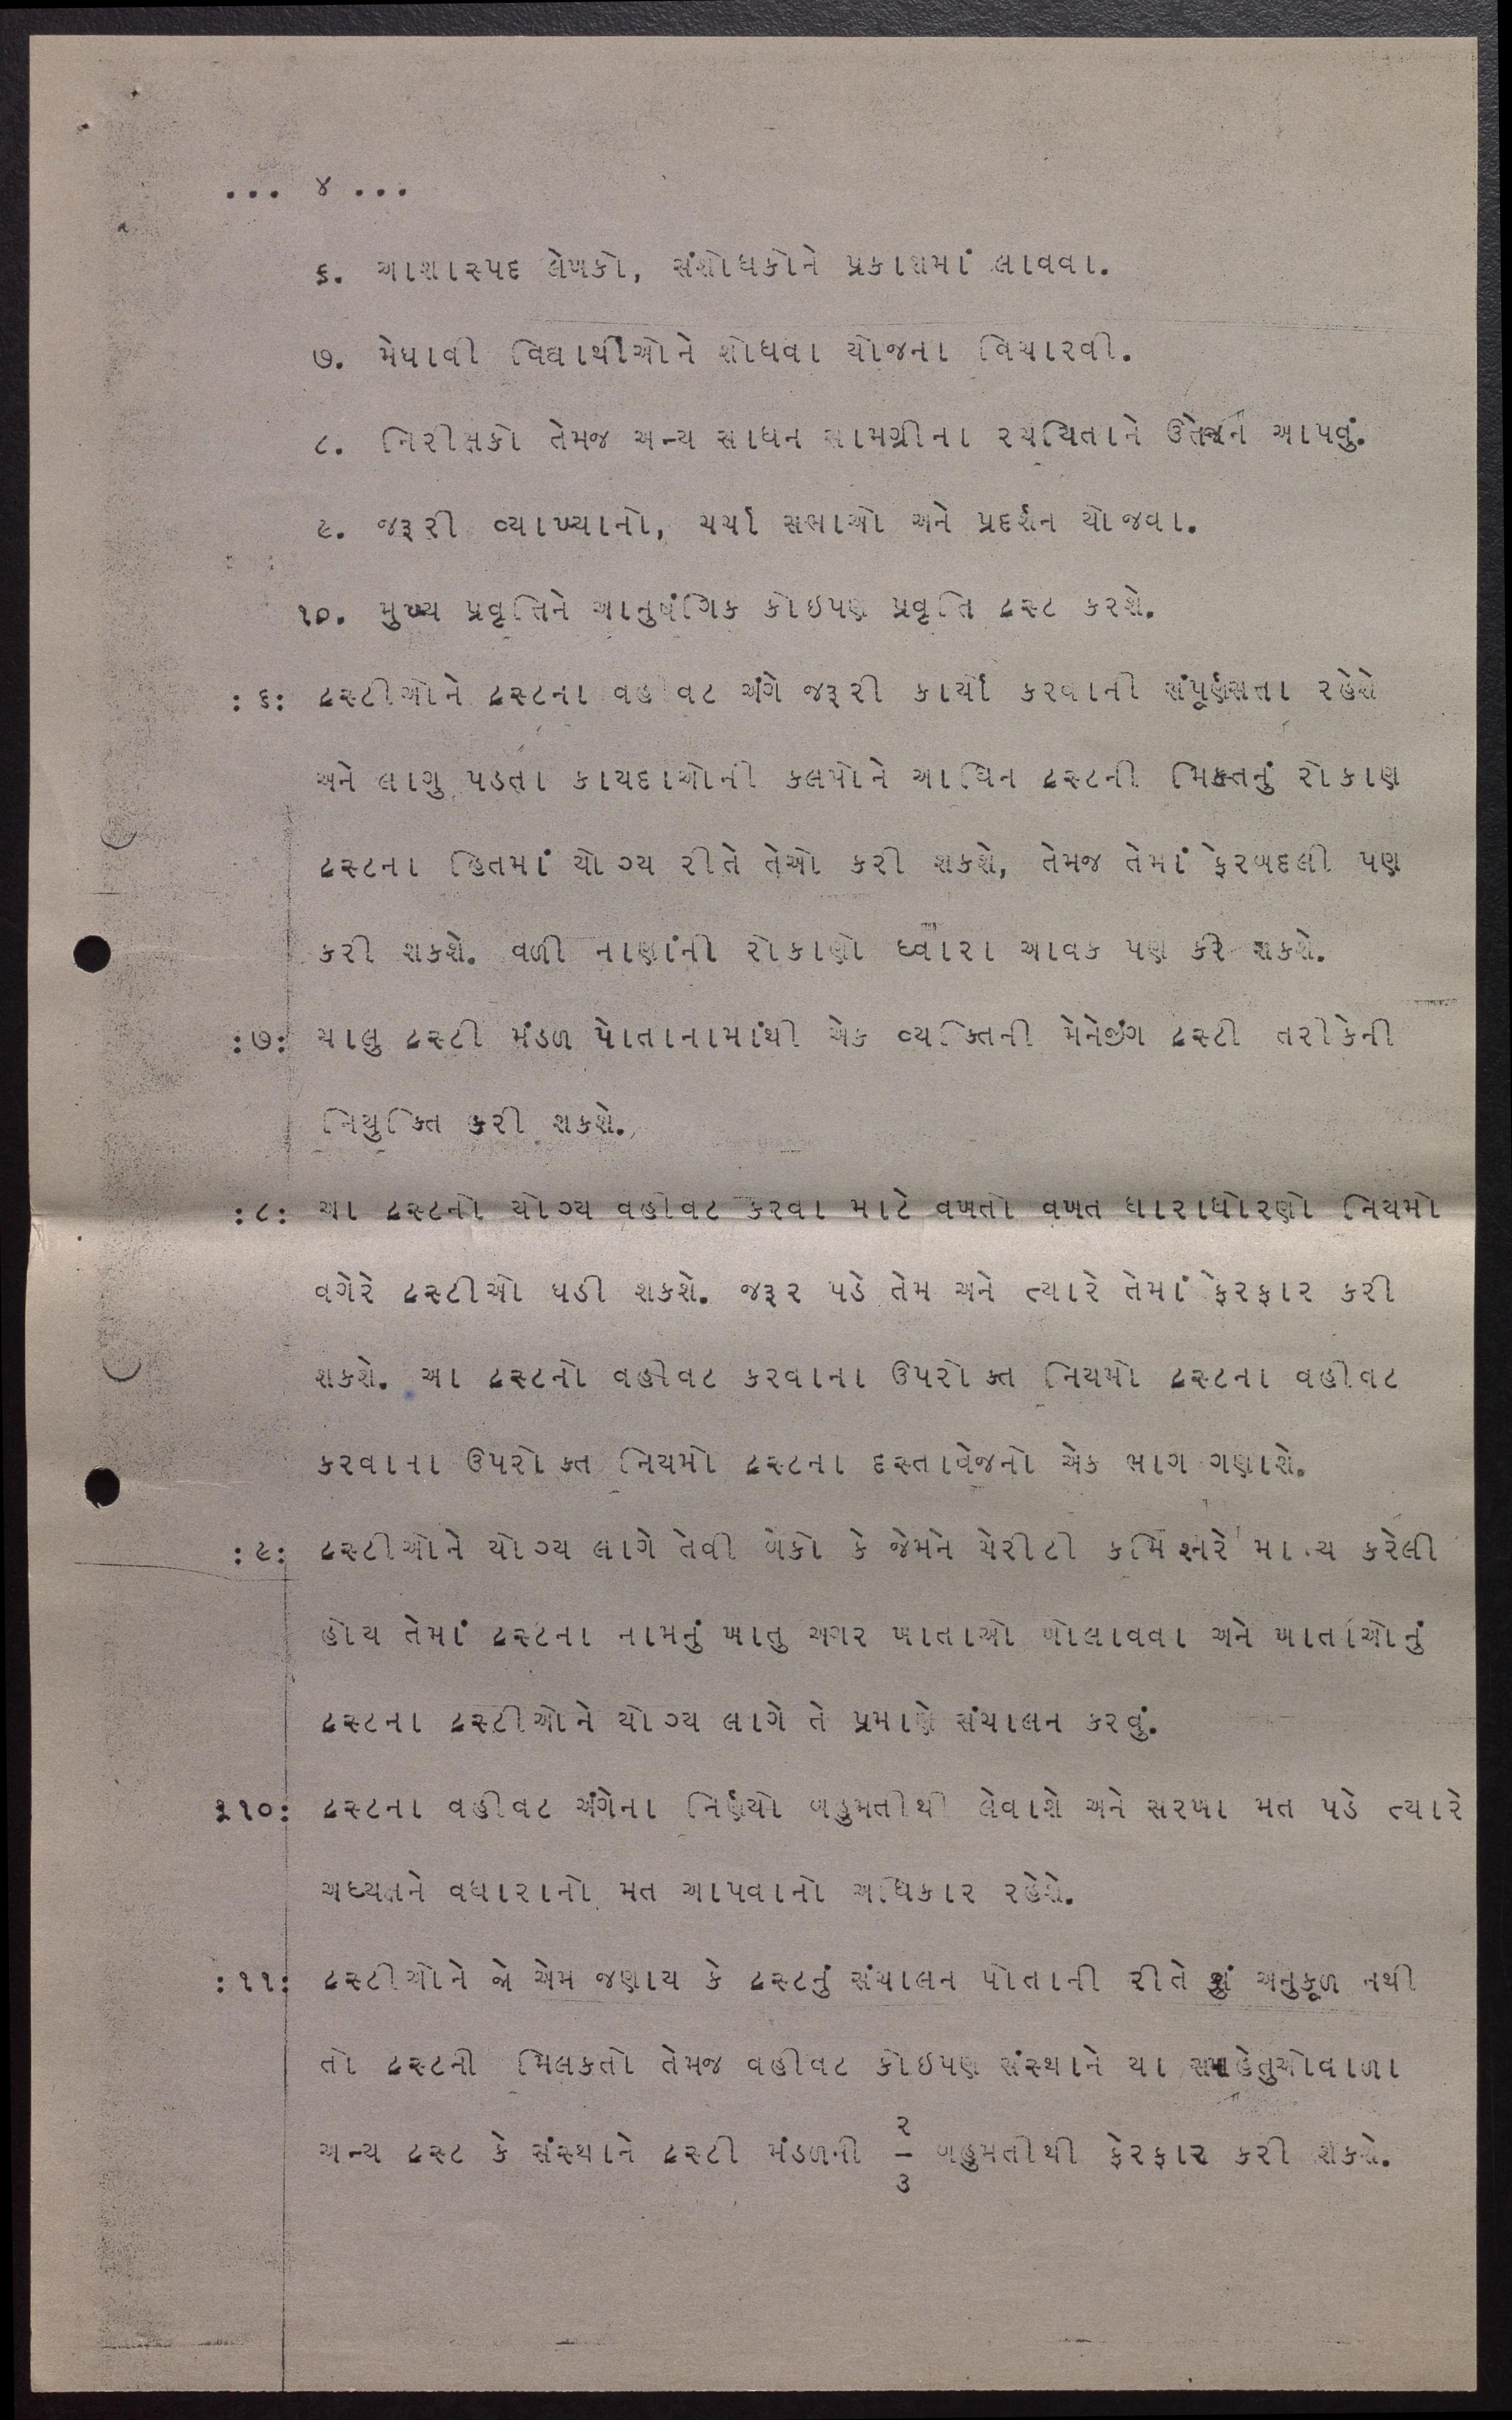 ... ૪ ...
૬. આશાસ્પદ લેખકો, સંશોધકોને પ્રકાશમાં લાવવા.
૭. મેધાવી વિદ્યાર્થીઓને શોધવા યોજના વિચારવી.
૮. નિરીક્ષકો તેમજ અન્ય સાધન સામગ્રીના રચયિતાને ઉતેજન આપવું.
૯. જરૂરી વ્યાખ્યાનો, ચર્ચા સભાઓ અને પ્રદર્શન યોજવા.
૧૦. મુખ્ય પ્રવૃત્તિને આનુષંગિક કોઇપણ પ્રવૃતિ ટ્રસ્ટ કરશે.
:૬: ટ્રસ્ટીઓને ટ્રસ્ટના વહીવટ અંગે જરૂરી કાર્યો કરવાની સંપૂર્ણસતા રહેશે
અને લાગુ પડતા કાયદાઓની કલમોને આધિન ટ્રસ્ટની રોકાણ
ટ્રસ્ટના હિતમાં યોગ્ય રીતે તેઓ કરી શકશે, તેમજ તેમાં ફેરબદલી પણ
કરી શકશે. વળી નાણાંની રોકાણો ધ્વારા આવક પણ કરી શકશે.
:૭: ચાલુ ટ્રસ્ટી મંડળ પોતાનામાંથી એક વ્યક્તિની મેનેજીંગ ટ્રસ્ટી તરીકેની
નિયુક્તિ કરી શકશે.
:૮: આ ટ્રસ્ટનો યોગ્ય વહીવટ કરવા માટે વખતો વખત ધારાધોરણો નિયમો
વગેરે ટ્રસ્ટીઓ ઘડી શકશે. જરૂર પડે તેમ અને ત્યારે તેમાં ફેરફાર કરી
શકશે. આ ટ્રસ્ટનો વહીવટ કરવાના ઉપરોક્ત નિયમો ટ્રસ્ટના વહીવટ
કરવાના ઉપરોક્ત નિયમો ટ્રસ્ટના દસ્તાવેજનો એક ભાગ ગણાશે.
:૯: ટ્રસ્ટીઓને યોગ્ય લાગે તેવી બેંકો કે જેમને ચેરીટી કમિશ્નરે માન્ય કરેલી
હોય તેમાં ટ્રસ્ટના નામનું ખાતુ અગર ખાતાઓ ખોલાવવા અને ખાતાંઓનું
ટ્રસ્ટના ટ્રસ્ટીઓને યોગ્ય લાગે તે પ્રમાણે સંચાલન કરવું.
:૧૦: ટ્રસ્ટના વહીવટ અંગેના નિર્ણયો બહુમતીથી લેવાશે અને સરખા મત પડે ત્યારે
અધ્યક્ષને વધારાનો મત આપવાનો અધિકાર રહેશે.
:૧૧: ટ્રસ્ટીઓને જો એમ જણાય કે ટ્રસ્ટનું સંચાલન પોતાની રીતે અનુકૂળ નથી
તો ટ્રસ્ટની મિલકતો તેમજ વહીવટ કોઇપણ સંસ્થાને યા
અન્ય ટ્રસ્ટ કે સંસ્થાને ટ્રસ્ટી મંડળની ૨/૩ બહુમતીથી ફેરફાર કરી શકશે.